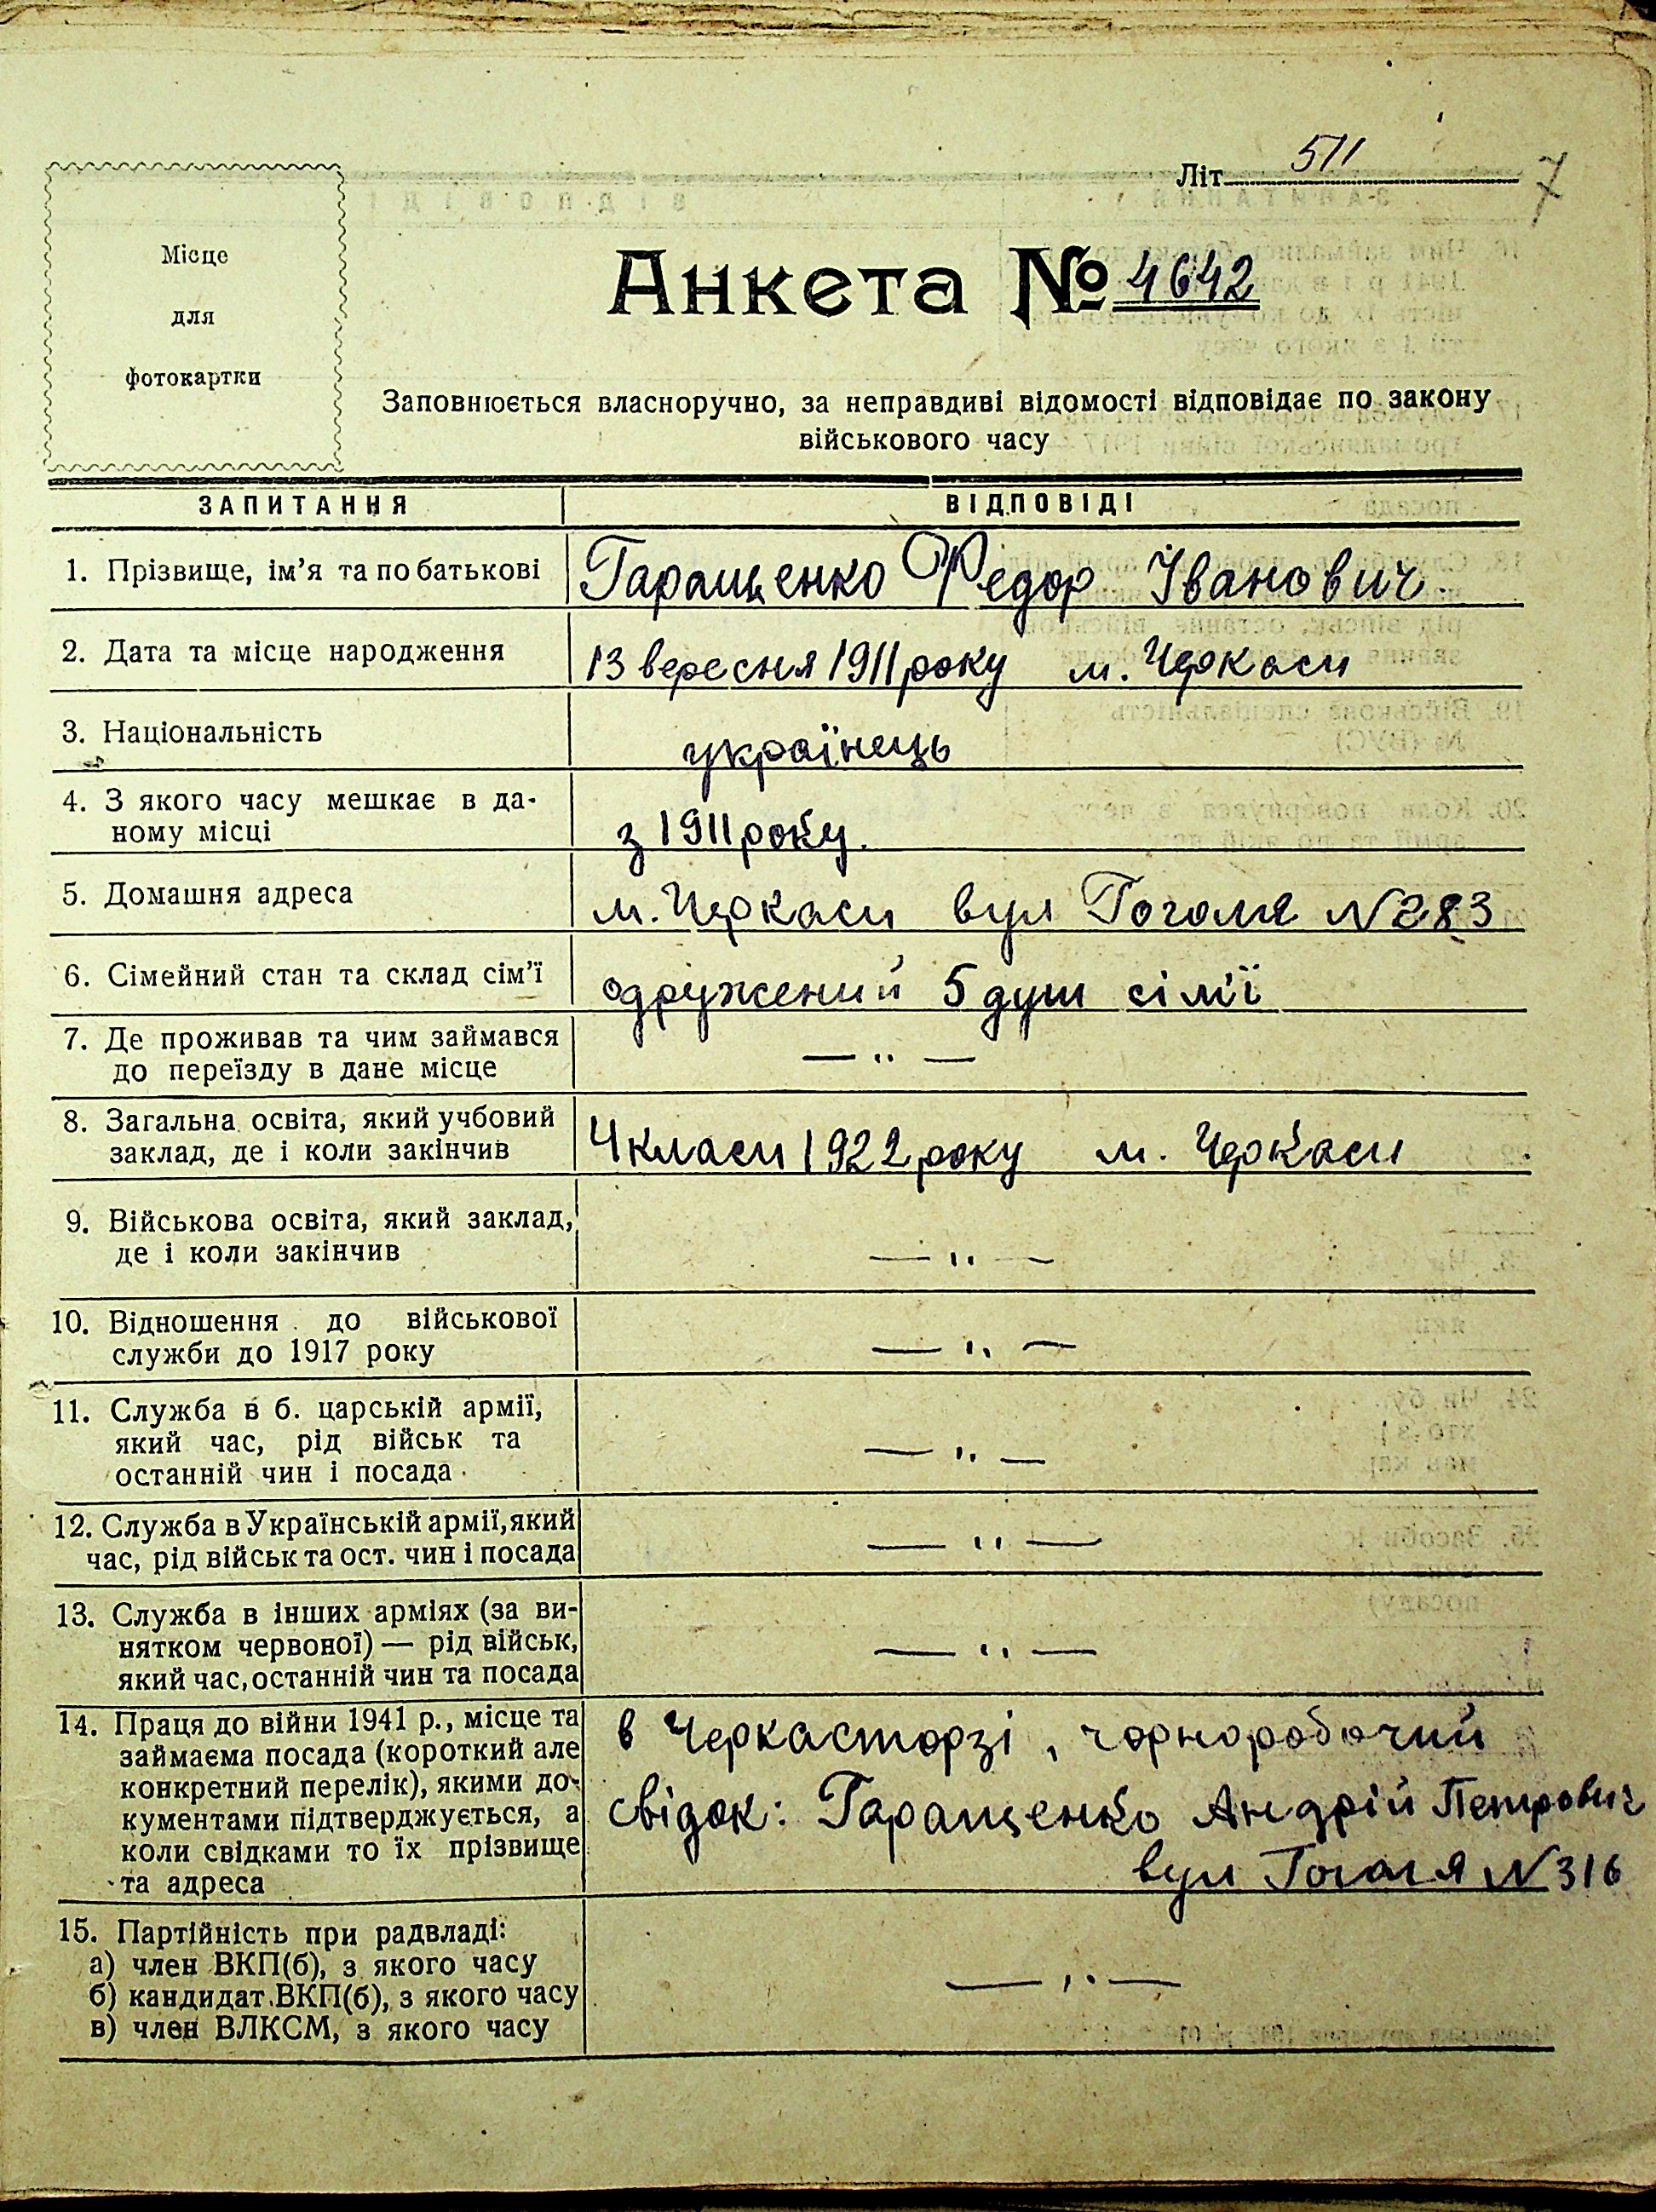 Літ 511
7
Місце
для
фотокартки
Анкета № 4642
Заповнюється власноручно, за неправдиві відомості відповідає по закону
військового часу
ЗАПИТАННЯ ВІДПОВІДІ
1. Прізвище, ім'я та по батькові Гаращенко Федор Іванович.
2. Дата та місце народження 13 вересня 1911 року м. Черкаси
3. Національність українець
4. З якого часу мешкає в да-
ному місці з 1911 року.
5. Домашня адреса м. Черкаси вул Гоголя N 283
6. Сімейний стан та склад сім'ї одружений 5 душ сімї
7. Де проживав та чим займався
до переїзду в дане місце — " —
8. Загальна освіта, який учбовий
заклад, де і коли закінчив 4 класи 1922 року м. Черкаси
9. Військова освіта, який заклад,
де і коли закінчив — " —
10. Відношення до військової
служби до 1917 року — " —
11. Служба в б. царській армії,
який час, рід військ та
останній чин і посада — " —
12. Служба в Українській армії, який
час, рід військ та ост. чин і посада — " —
13. Служба в інших арміях (за ви-
нятком червоної) — рід військ,
який час, останній чин та посада — " —
14. Праця до війни 1941 р., місце та
займаєма посада (короткий але
конкретний перелік), якими до-
кументами підтверджується, а
коли свідками то їх прізвище
та адреса
в Черкасторзі, чорноробочий
свідок: Гаращенко Андрій Петрович
вул Гоголя N 316
15. Партійність при радвладі:
а) член ВКП(б), з якого часу
б) кандидат ВКП(б), з якого часу
в) член ВЛКСМ, з якого часу — " —